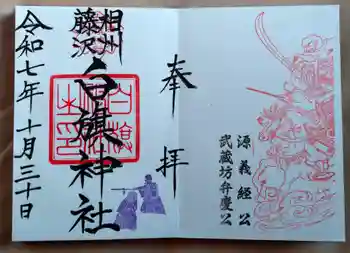 奉拝
相州
藤沢
白旗神社
令和七年十月三十日
源義経公
武蔵坊弁慶公